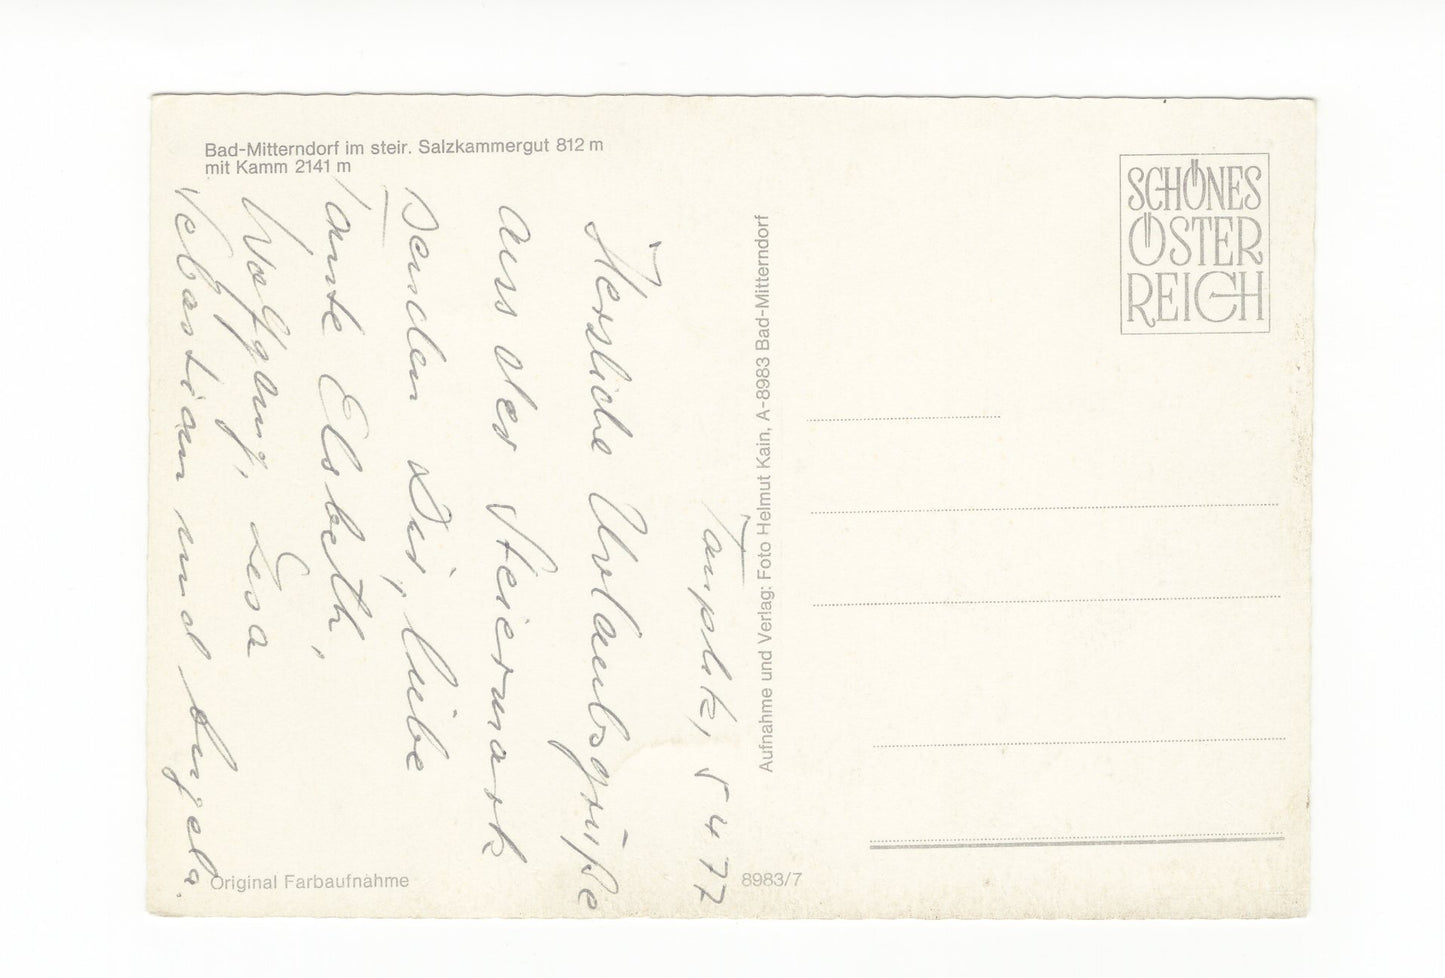 Bad-Mitterndorf im steir. Salzkammergut 812 m
mit Kamm 2141 m
Tauplitz, 5 4 77
Herzliche Urlaubsgrüße
aus der Steiermark
senden Dir, liebe
Tante Elsbeth,
Wolfgang, Lisa
Sebastian und Angela.
Aufnahme und Verlag: Foto Helmut Kain, A-8983 Bad-Mitterndorf
SCHÖNES
ÖSTER
REICH
Original Farbaufnahme
8983/7